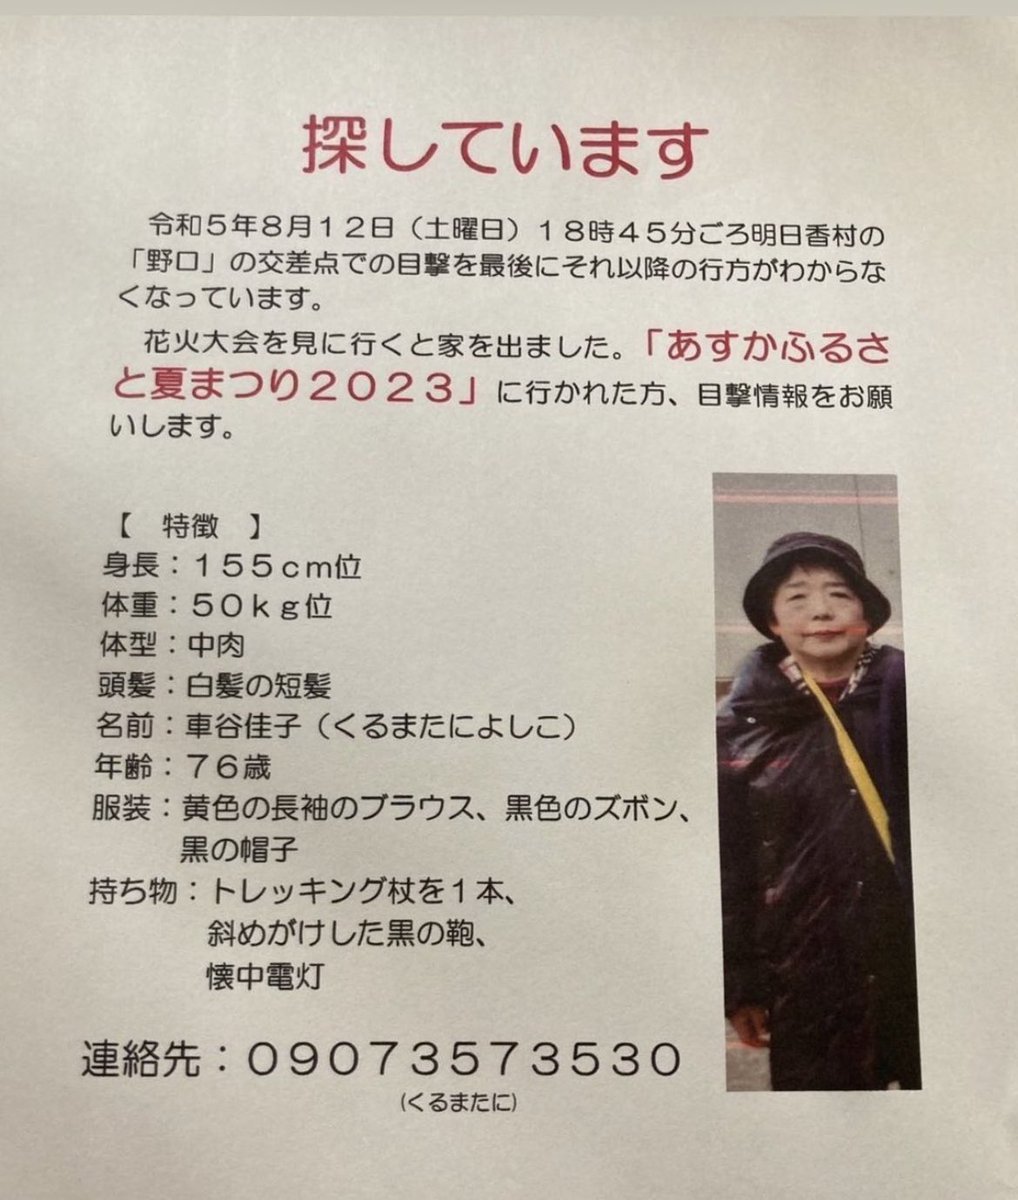 探しています
令和５年８月１２日（土曜日）１８時４５分ごろ明日香村の
「野口」の交差点での目撃を最後にそれ以降の行方がわからな
くなっています。
花火大会を見に行くと家を出ました。「あすかふるさ
と夏まつり２０２３」に行かれた方、目撃情報をお願
いします。
【　特徴　】
身長：１５５ｃｍ位
体重：５０ｋｇ位
体型：中肉
頭髪：白髪の短髪
名前：車谷佳子（くるまたによしこ）
年齢：７６歳
服装：黄色の長袖のブラウス、黒色のズボン、
黒の帽子
持ち物：トレッキング杖を１本、
斜めがけした黒の鞄、
懐中電灯
連絡先：０９０７３５７３５３０
(くるまたに)